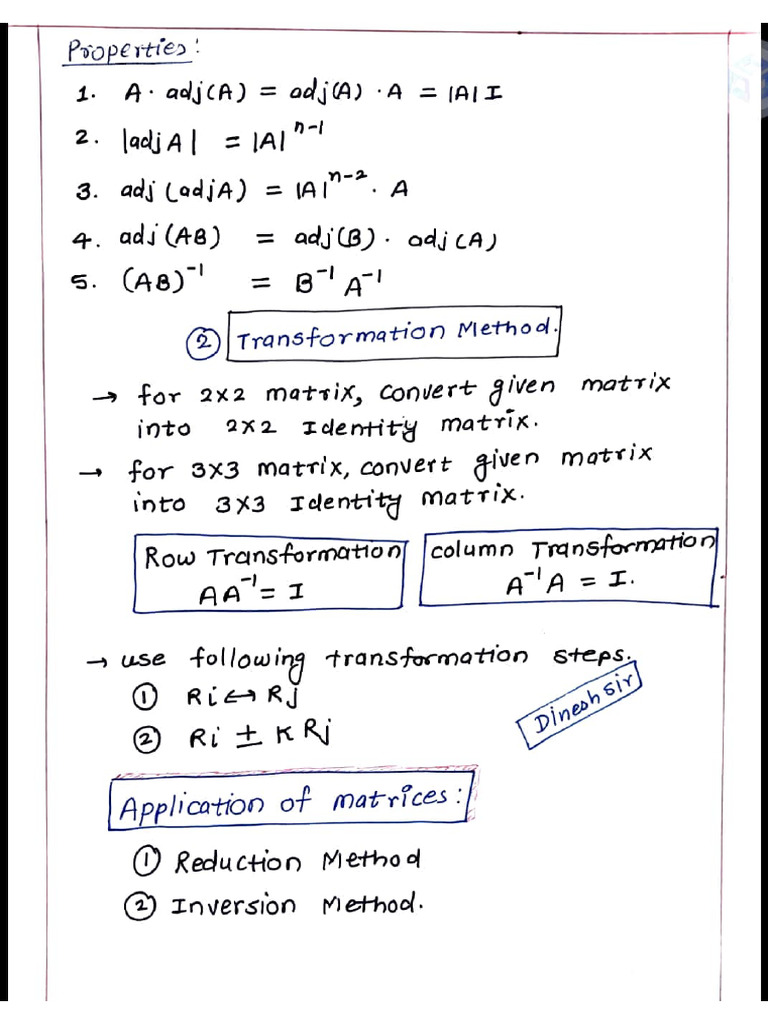 Properties:
1. A · adj(A) = adj(A) · A = |A| I
2. |adj A| = |A|^{n-1}
3. adj (adj A) = |A|^{n-2} · A
4. adj (AB) = adj(B) · adj (A)
5. (AB)^{-1} = B^{-1} A^{-1}
② Transformation Method.
→ for 2×2 matrix, convert given matrix
into 2×2 Identity matrix.
→ for 3×3 matrix, convert given matrix
into 3×3 Identity matrix.
Row Transformation
AA^{-1} = I
column Transformation
A^{-1}A = I.
→ use following transformation steps.
① Ri ↔ Rj
② Ri ± K Rj
Dinesh sir
Application of matrices:
① Reduction Method
② Inversion Method.